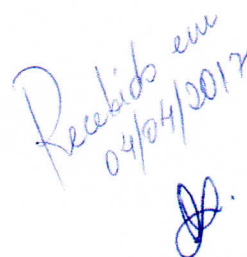 Recebido em
04/04/2017